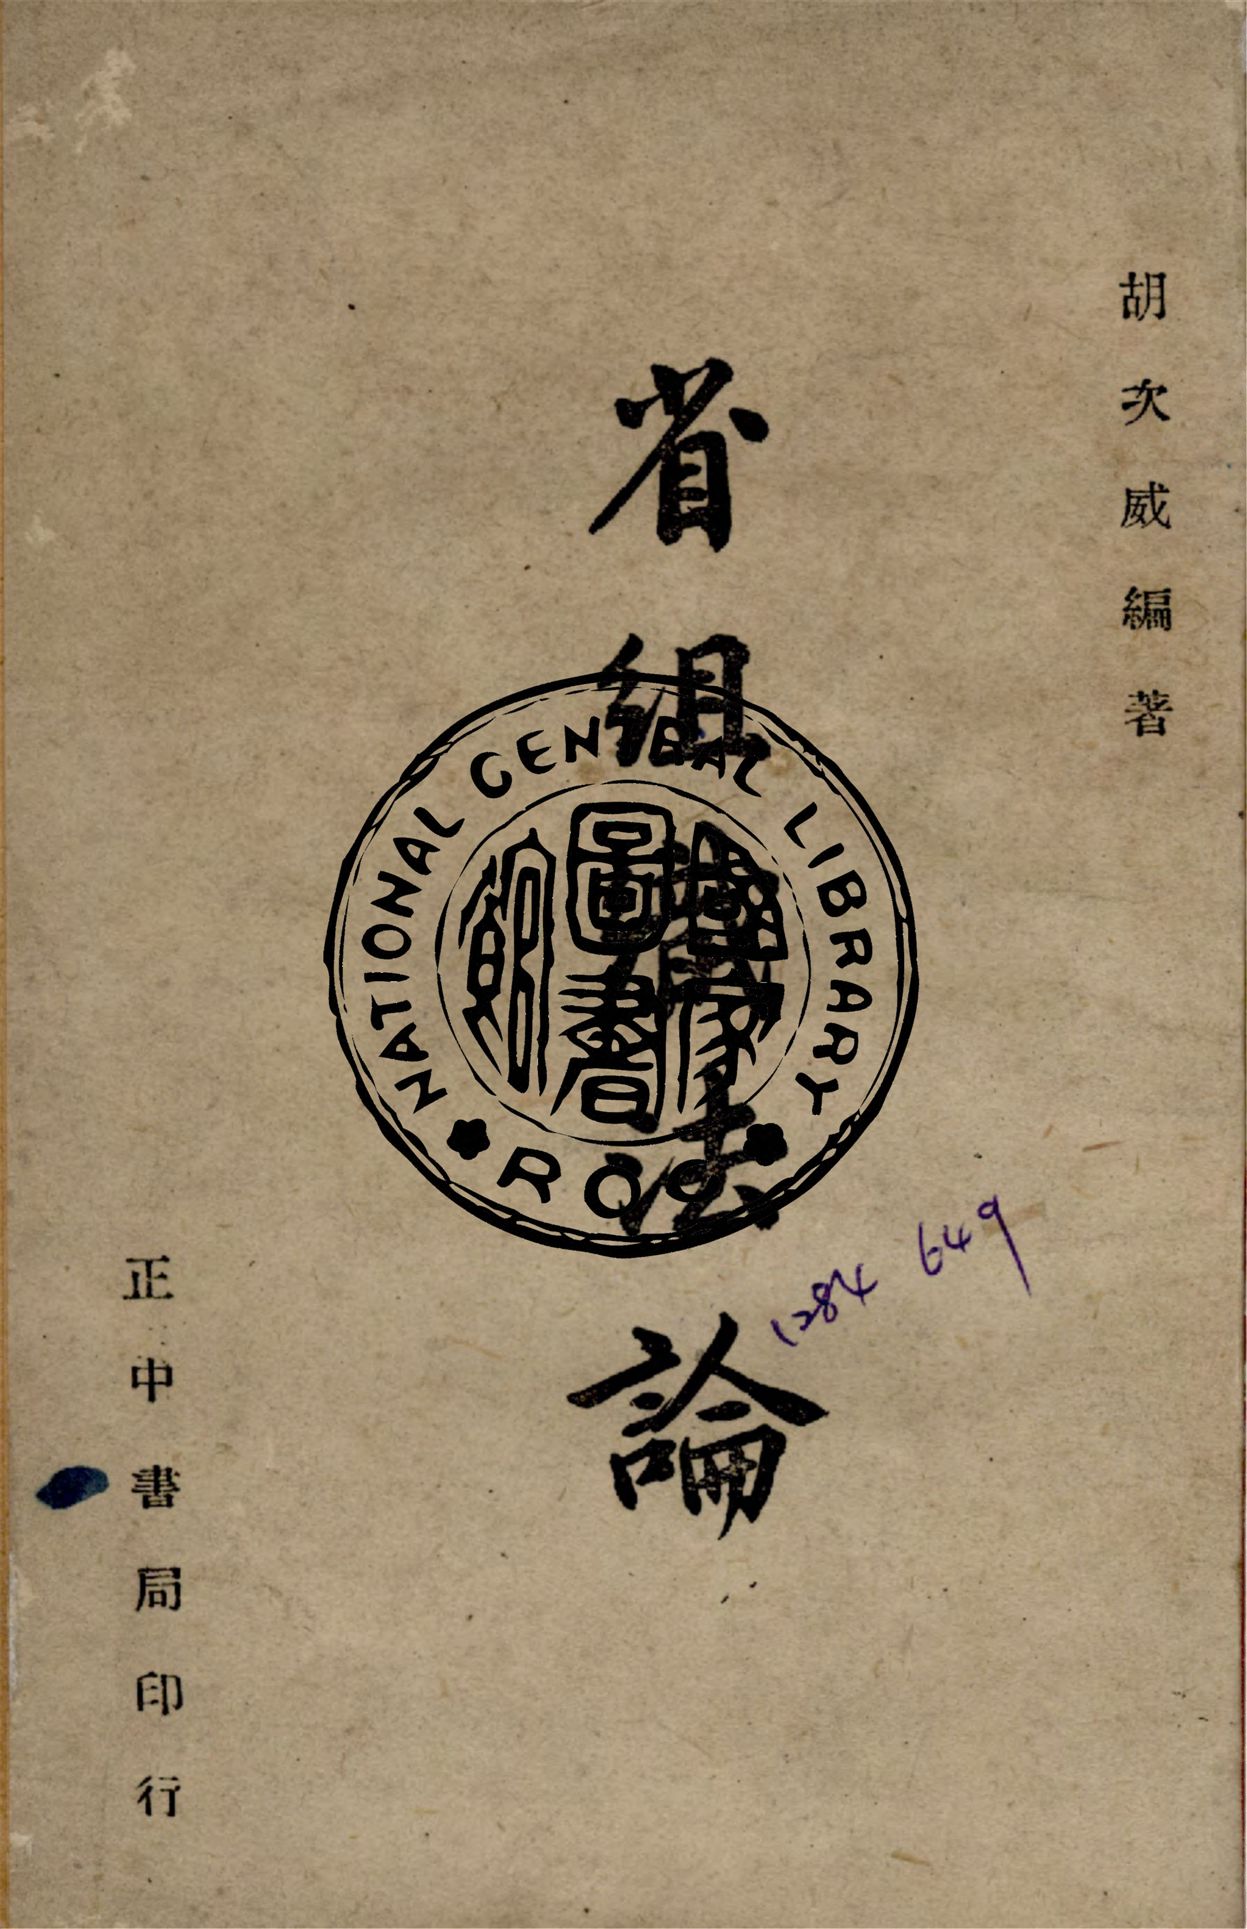 胡次威編著
省組織法論
正中書局印行
NATIONAL CENTRAL LIBRARY
ROC
國家圖書館
1284 649